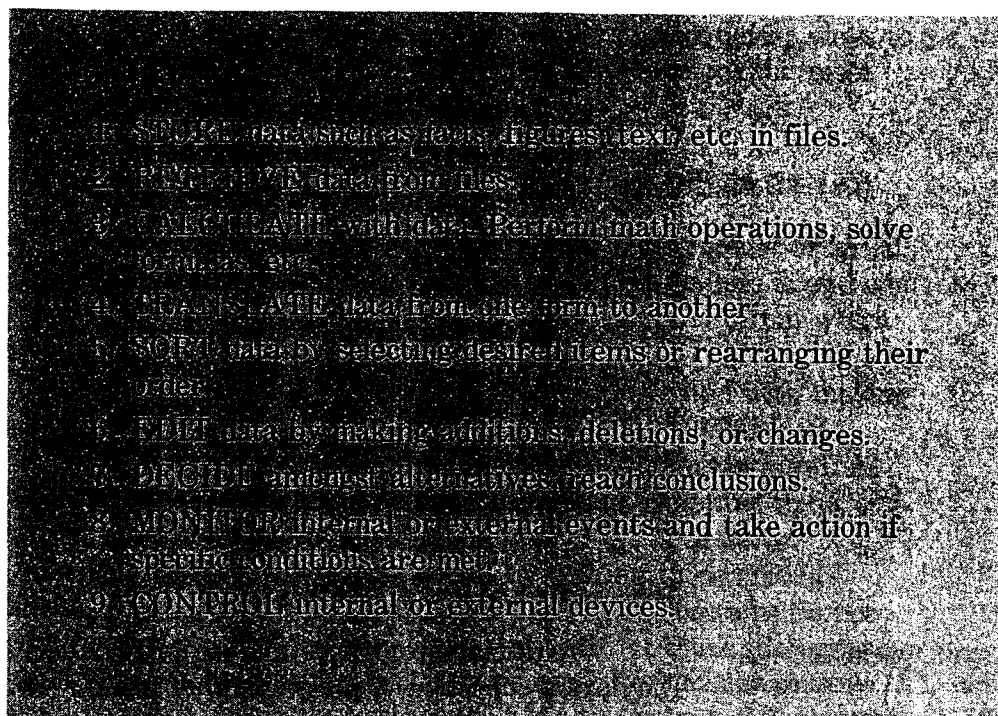 1. STORE data such as facts, figures, text, etc. in files.
2. RETRIEVE data from files.
3. CALCULATE with data. Perform math operations, solve
formulas, etc.
4. TRANSLATE data from one form to another.
5. SORT data by selecting desired items or rearranging their
order.
6. EDIT data by making additions, deletions, or changes.
7. DECIDE amongst alternatives, reach conclusions.
8. MONITOR internal or external events and take action if
specific conditions are met.
9. CONTROL internal or external devices.